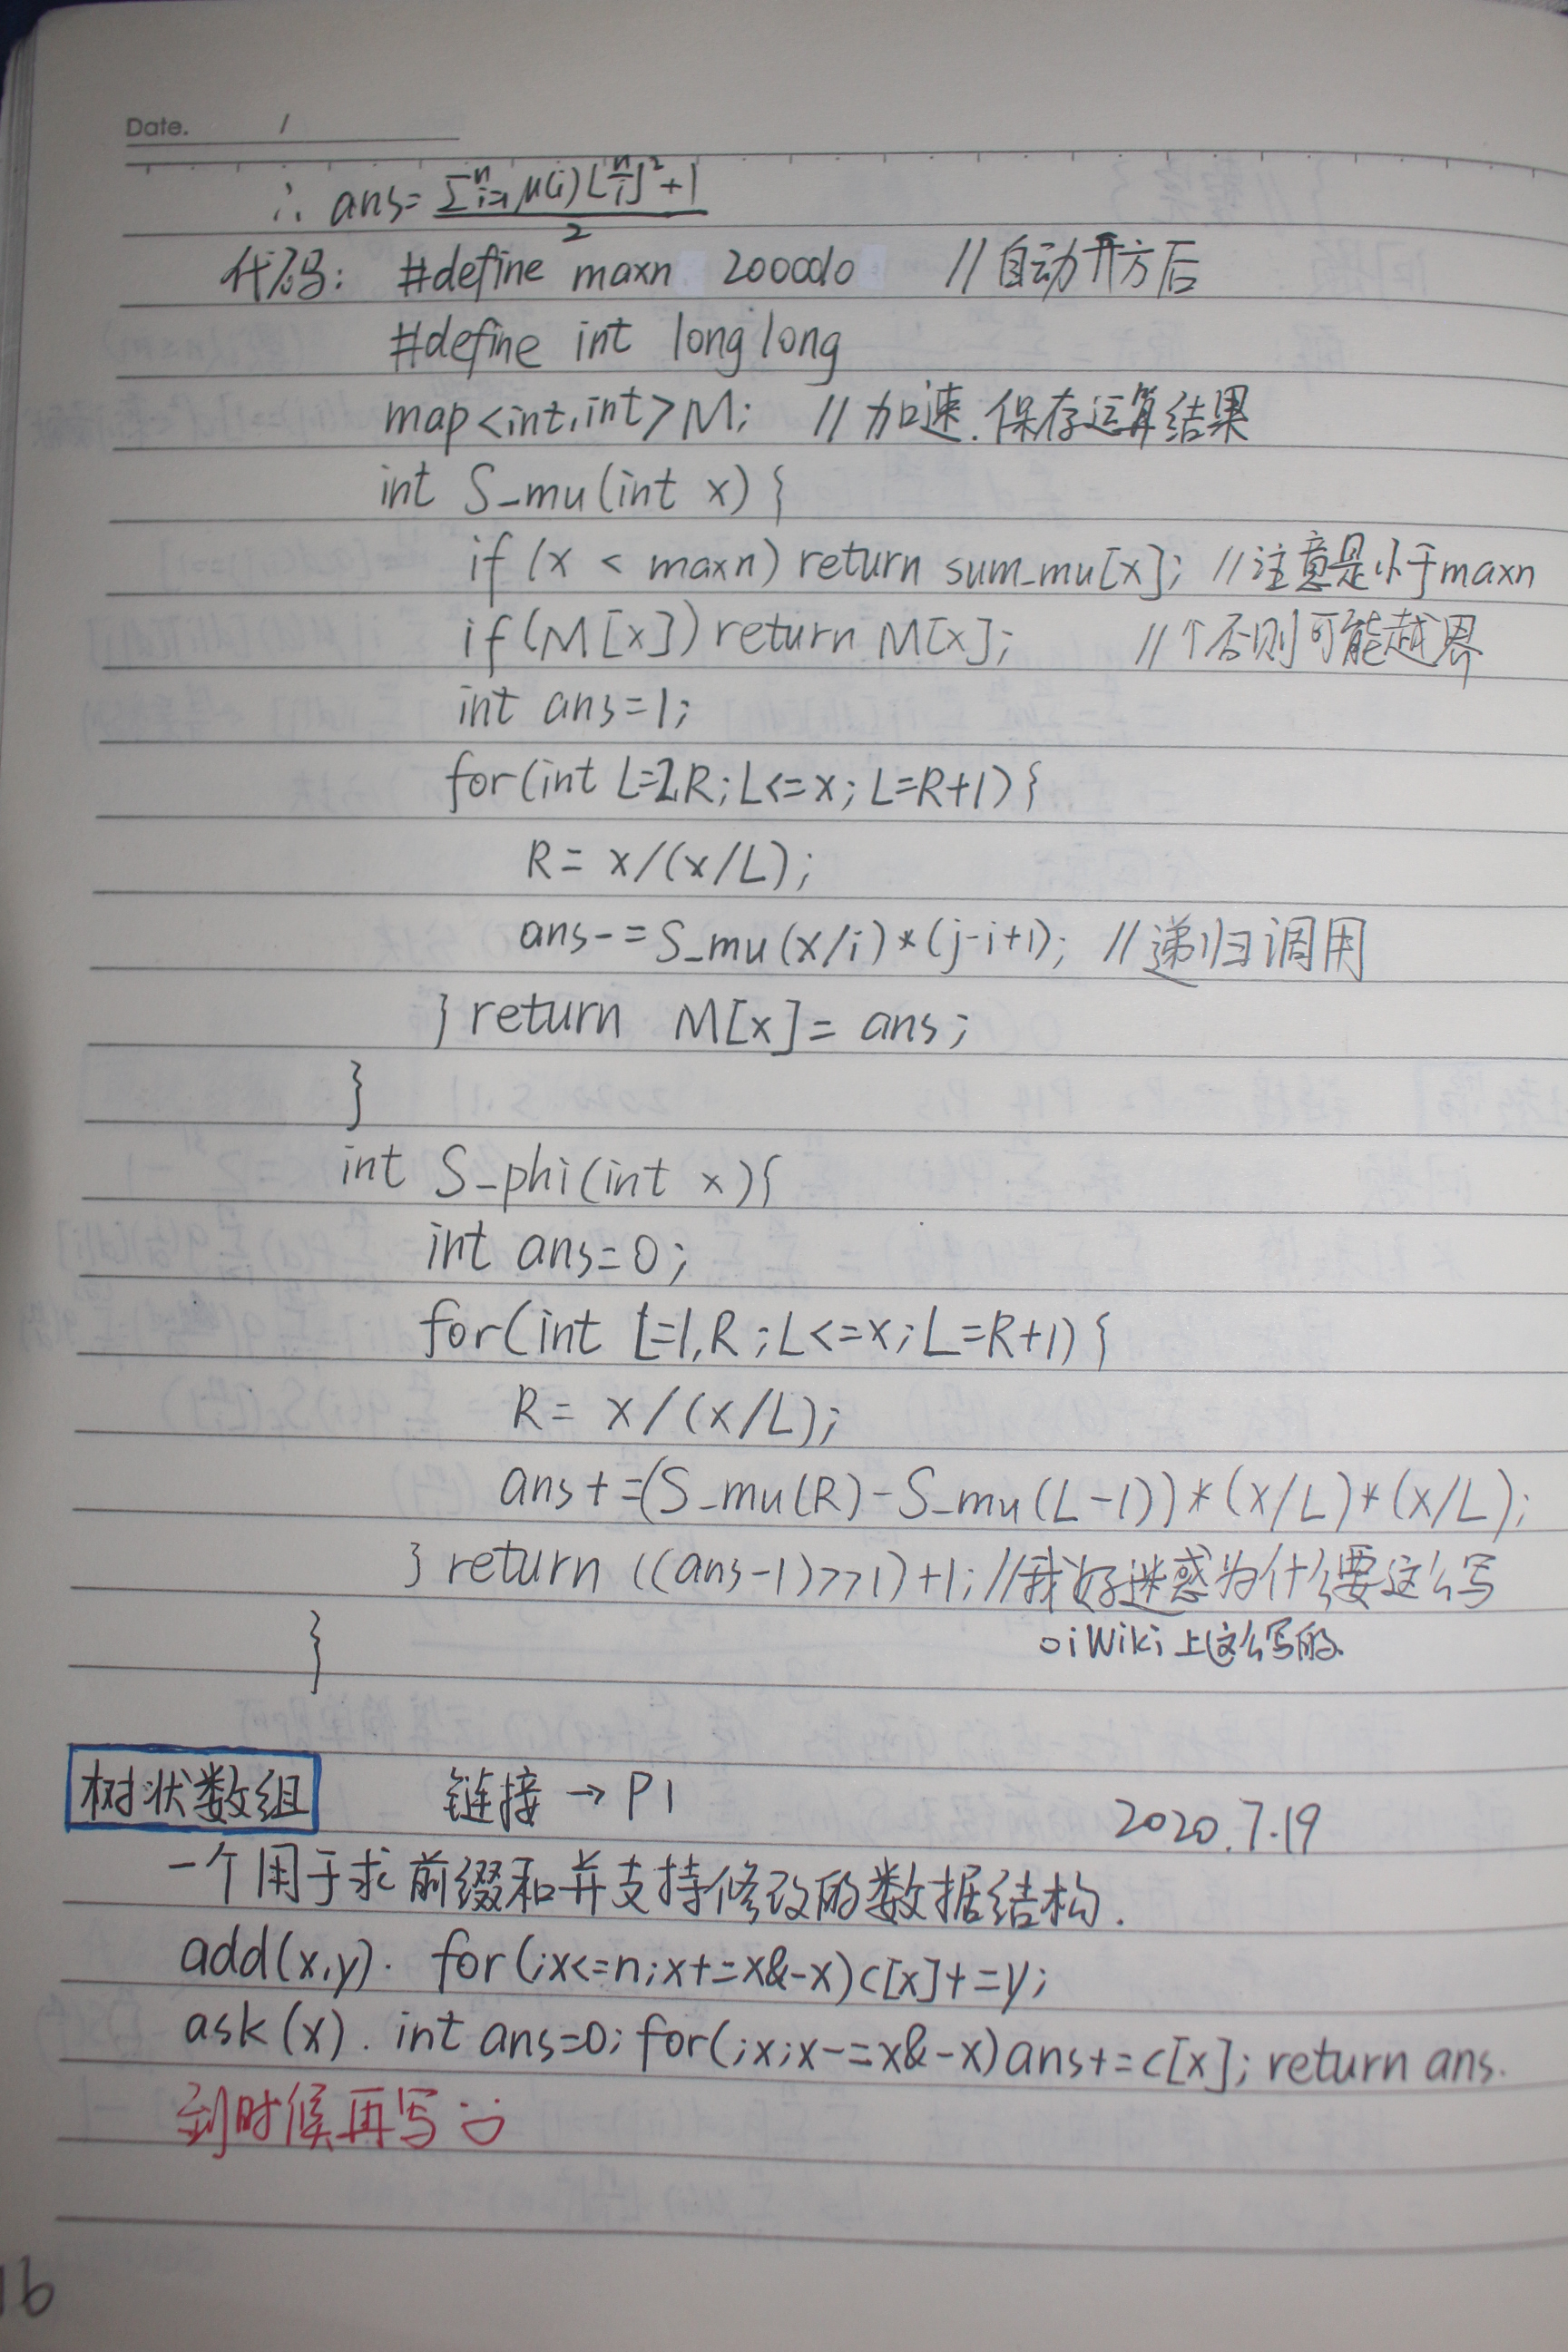 Date. /
∴ ans= (Σ_{i=1}^{n} μ(i)⌊n/i⌋²+1)/2
代码: #define maxn 2000010 //自动开方后
#define int long long
map<int,int>M; //加速.保存运算结果
int S_mu(int x){
if (x < maxn) return sum_mu[x]; //注意是小于maxn
if(M[x]) return M[x]; //↑否则可能越界
int ans=1;
for(int L=2,R;L<=x;L=R+1){
R= x/(x/L);
ans-=S_mu(x/i)*(j-i+1); //递归调用
} return M[x]= ans;
}
int S_phi(int x){
int ans=0;
for(int L=1,R;L<=x;L=R+1){
R= x/(x/L);
ans+=(S_mu(R)-S_mu(L-1))*(x/L)*(x/L);
} return ((ans-1)>>1)+1;//我好迷惑为什么要这么写
oiWiki上这么写的
}
树状数组 链接→P1 2020.7.19
一个用于求前缀和并支持修改的数据结构.
add(x,y). for(;x<=n;x+=x&-x)c[x]+=y;
ask(x). int ans=0;for(;x;x-=x&-x)ans+=c[x];return ans.
到时候再写
16